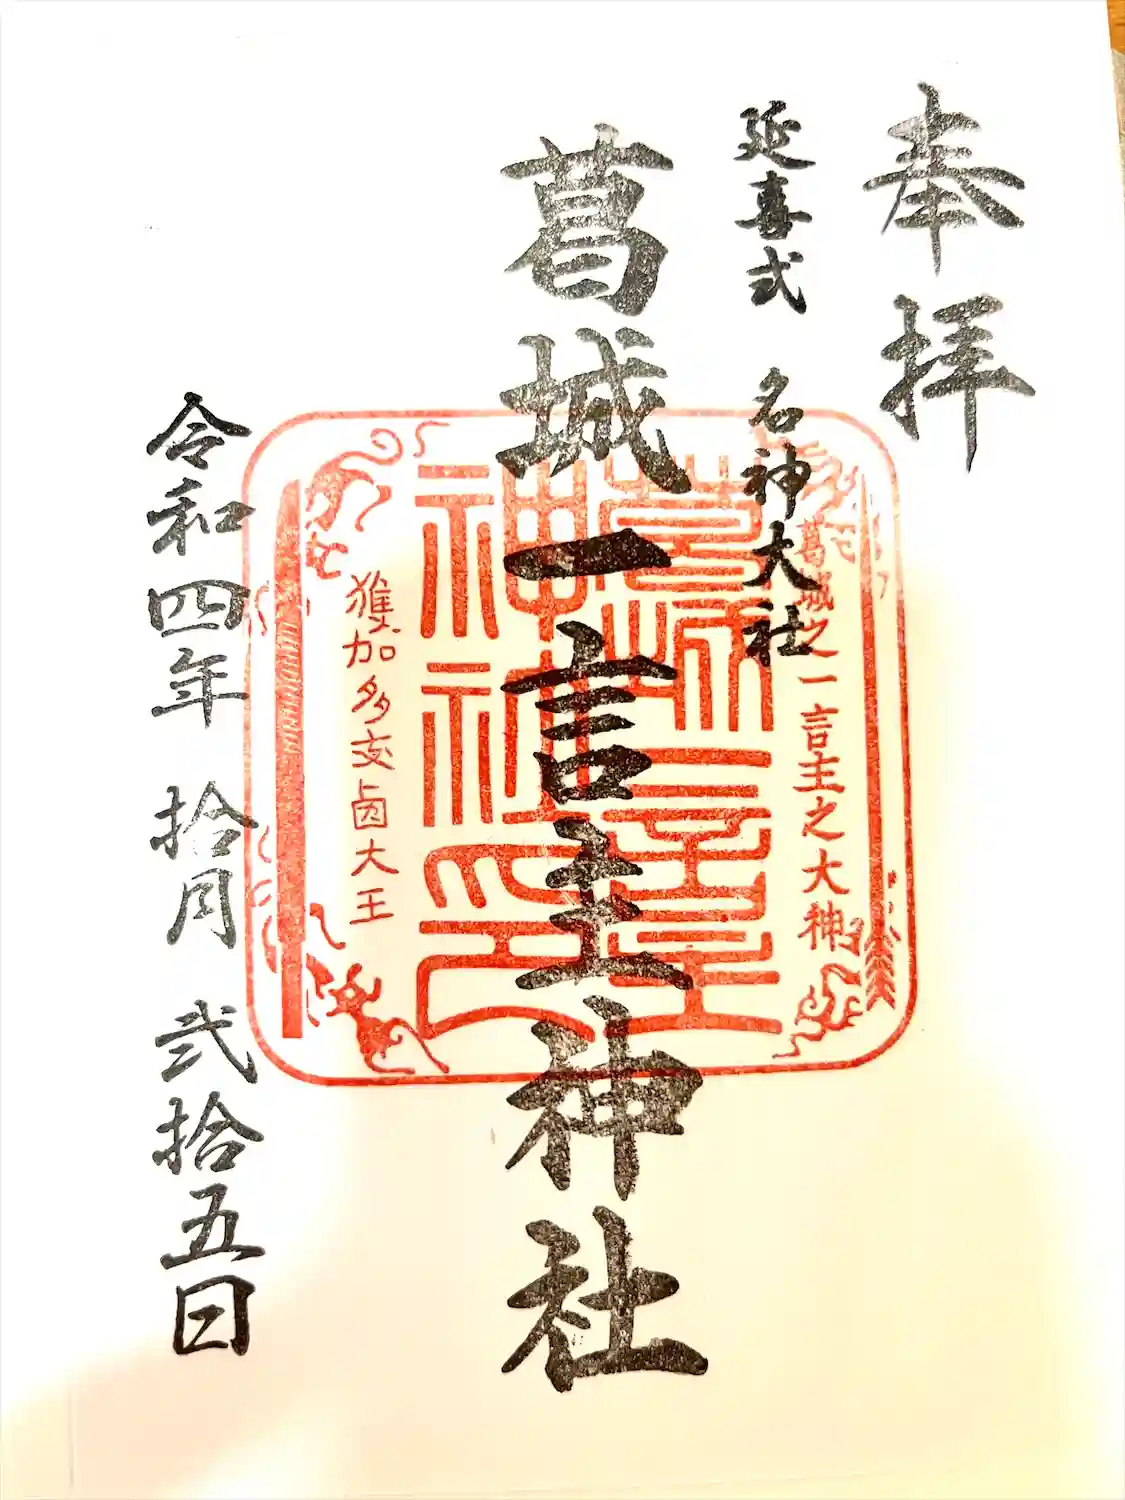 奉拝
延喜式 名神大社
葛城一言主神社
令和四年 拾月 弐拾五日
葛城之一言主之大神
葛城一言主
神社印
獲加多支鹵大王